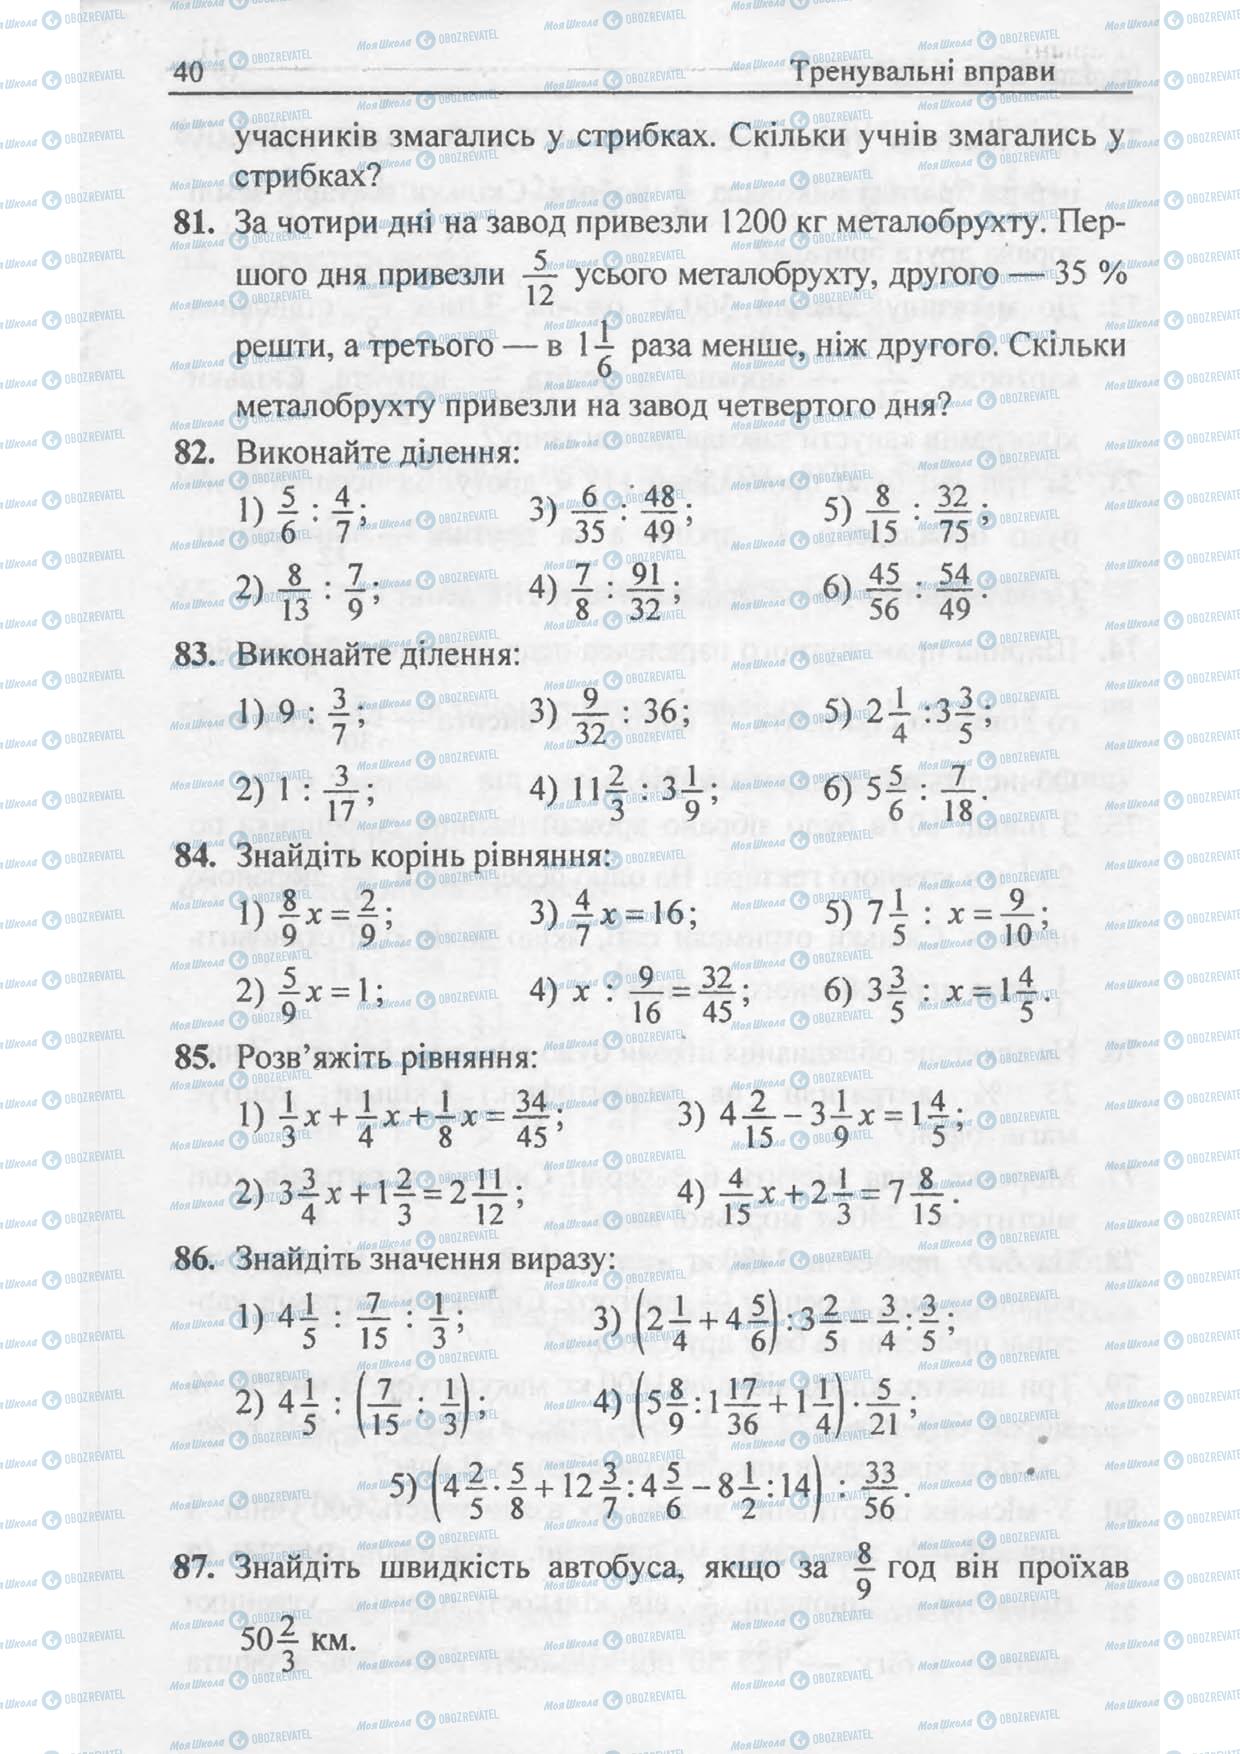 40 Тренувальні вправи
учасників змагались у стрибках. Скільки учнів змагались у
стрибках?
81. За чотири дні на завод привезли 1200 кг металобрухту. Пер-
шого дня привезли 5/12 усього металобрухту, другого — 35 %
решти, а третього — в 1 1/6 раза менше, ніж другого. Скільки
металобрухту привезли на завод четвертого дня?
82. Виконайте ділення:
1) 5/6 : 4/7; 3) 6/35 : 48/49; 5) 8/15 : 32/75;
2) 8/13 : 7/9; 4) 7/8 : 91/32; 6) 45/56 : 54/49.
83. Виконайте ділення:
1) 9 : 3/7; 3) 9/32 : 36; 5) 2 1/4 : 3 3/5;
2) 1 : 3/17; 4) 11 2/3 : 3 1/9; 6) 5 5/6 : 7/18.
84. Знайдіть корінь рівняння:
1) 8/9 x = 2/9; 3) 4/7 x = 16; 5) 7 1/5 : x = 9/10;
2) 5/9 x = 1; 4) x : 9/16 = 32/45; 6) 3 3/5 : x = 1 4/5.
85. Розв’яжіть рівняння:
1) 1/3 x + 1/4 x + 1/8 x = 34/45; 3) 4 2/15 − 3 1/9 x = 1 4/5;
2) 3 3/4 x + 1 2/3 = 2 11/12; 4) 4/15 x + 2 1/3 = 7 8/15.
86. Знайдіть значення виразу:
1) 4 1/5 : 7/15 : 1/3; 3) (2 1/4 + 4 5/6) : 3 2/5 − 3/4 : 3/5;
2) 4 1/5 : (7/15 : 1/3); 4) (5 8/9 : 1 17/36 + 1 1/4) · 5/21;
5) (4 2/5 · 5/8 + 12 3/7 : 4 5/6 − 8 1/2 : 14) : 33/56.
87. Знайдіть швидкість автобуса, якщо за 8/9 год він проїхав
50 2/3 км.
МояШкола OBOZREVATEL